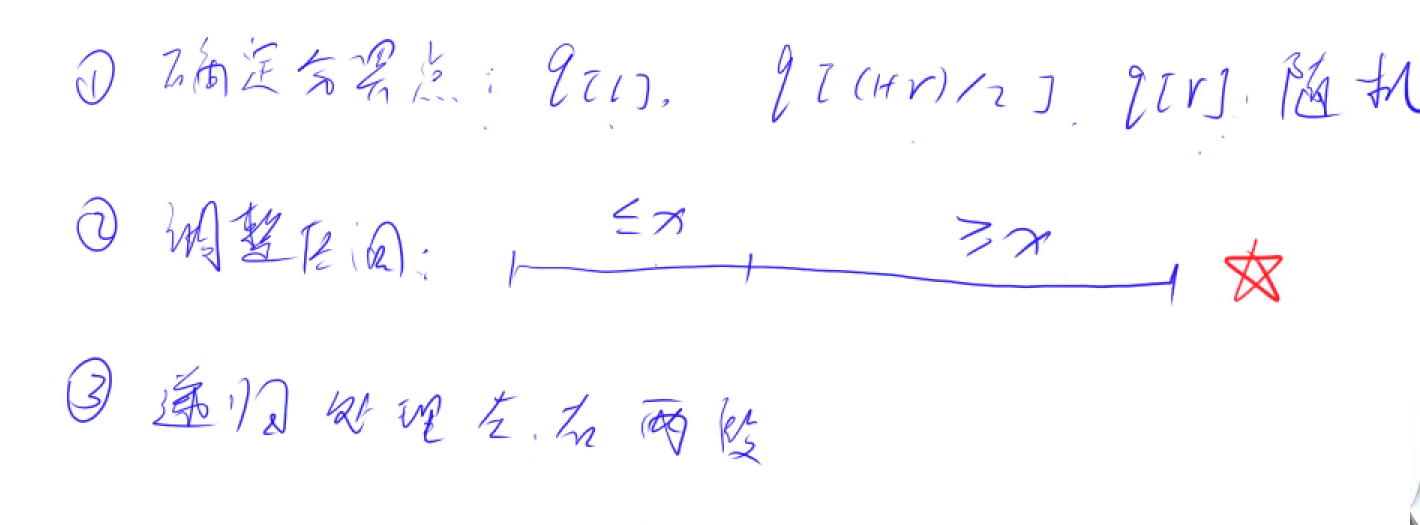 ① 确定分界点：q[l]，q[(l+r)/2]，q[r]，随机
② 调整区间：≤x ≥x
③ 递归处理左、右两段